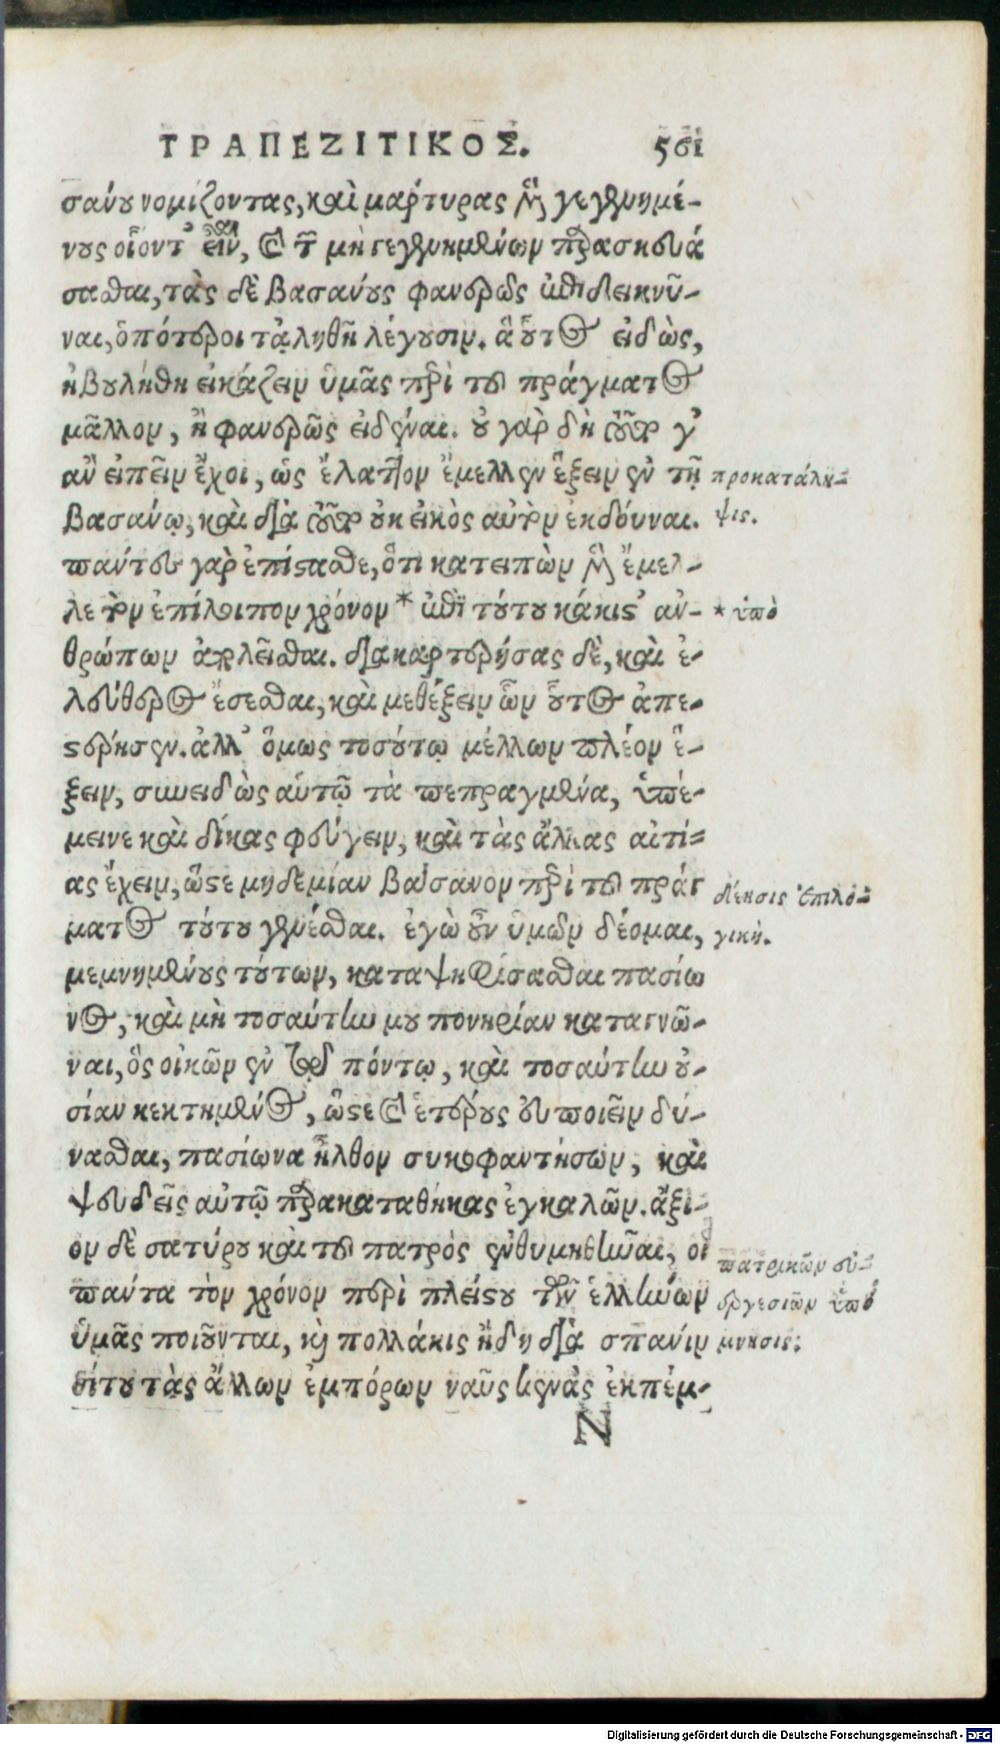 ΤΡΑΠΕΖΙΤΙΚΟΣ. 561
σάνου νομίζοντας, καὶ μάρτυρας μὲν γεγενημέ-
νους οἷόντ' εἶναι, καὶ τῶν μὴ γεγενημένων παρασκευά
σασθαι, τὰς δὲ βασάνους φανερῶς ἐπιδεικνύ-
ναι, ὁπότεροι τἀληθῆ λέγουσιν. ἃ οὗτος εἰδὼς,
ἠβουλήθη εἰκάζειν ὑμᾶς περὶ τοῦ πράγματος
μᾶλλον, ἢ φανερῶς εἰδέναι. οὐ γὰρ δὴ τοῦτό γ'
ἂν εἰπεῖν ἔχοι, ὡς ἔλαττον ἔμελλεν ἕξειν ἐν τῇ
προκατάλη-
βασάνῳ, καὶ διὰ τοῦτο οὐκ εἰκὸς αὐτὸν ἐκδοῦναι.
ψις.
πάντες γὰρ ἐπίστασθε, ὅτι κατειπὼν μὲν ἔμελ-
λε τὸν ἐπίλοιπον χρόνον * ἐπὶ τούτου κάκιστ' ἀν-
* ὑπὸ
θρώπων ἀπολεῖσθαι. διακαρτερήσας δὲ, καὶ ἐ-
λεύθερος ἔσεσθαι, καὶ μεθέξειν ὧν οὗτος ἀπε-
στέρησεν. ἀλλ' ὅμως τοσούτῳ μέλλων πλέον ἕ-
ξειν, συνειδὼς αὑτῷ τὰ πεπραγμένα, ὑπέ-
μεινε καὶ δίκας φεύγειν, καὶ τὰς ἄλλας αἰτί-
ας ἔχειν, ὥστε μηδεμίαν βάσανον περὶ τοῦ πράγ
δέησις ἐπιλο-
ματος τούτου γενέσθαι. ἐγὼ οὖν ὑμῶν δέομαι,
γική.
μεμνημένους τούτων, καταψηφίσασθαι πασίω
νος, καὶ μὴ τοσαύτην μου πονηρίαν καταγνῶ-
ναι, ὃς οἰκῶν ἐν τῷ πόντῳ, καὶ τοσαύτην οὐ-
σίαν κεκτημένος, ὥστε καὶ ἑτέρους εὖ ποιεῖν δύ-
νασθαι, πασίωνα ἦλθον συκοφαντήσων, καὶ
ψευδεῖς αὐτῷ παρακαταθήκας ἐγκαλῶν. ἄξι-
ον δὲ σατύρου καὶ τοῦ πατρὸς ἐνθυμηθῆναι, οἳ
πατρικῶν εὐ-
πάντα τὸν χρόνον περὶ πλείστου τῶν ἑλλήνων
εργεσιῶν ὑπό
ὑμᾶς ποιοῦνται, καὶ πολλάκις ἤδη διὰ σπάνιν
μνησις.
σίτου τὰς ἄλλων ἐμπόρων ναῦς κενὰς ἐκπέμ-
N
Digitalisierung gefördert durch die Deutsche Forschungsgemeinschaft - DFG